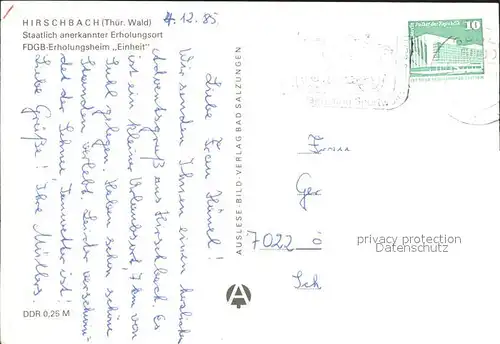 HIRSCHBACH (Thür. Wald)
Staatlich anerkannter Erholungsort
FDGB-Erholungsheim „Einheit"
4.12.85
Liebe Frau Hänel!
Wir senden Ihnen einen herzlichen
Adventsgruß aus Hirschbach. Es
ist ein kleiner Urlaubsort, 7 km von
Suhl gelegen. Haben schon schöne
Stunden verlebt. Leider verschwin-
det der Schnee, Tauwetter ist!
Liebe Grüße! Ihre Müllers.
DDR 0,25 M
AUSLESE-BILD-VERLAG BAD SALZUNGEN
A
10
Frau
Ger
7022
Sch
privacy protection
VINTAGE-POSTCARD.COM